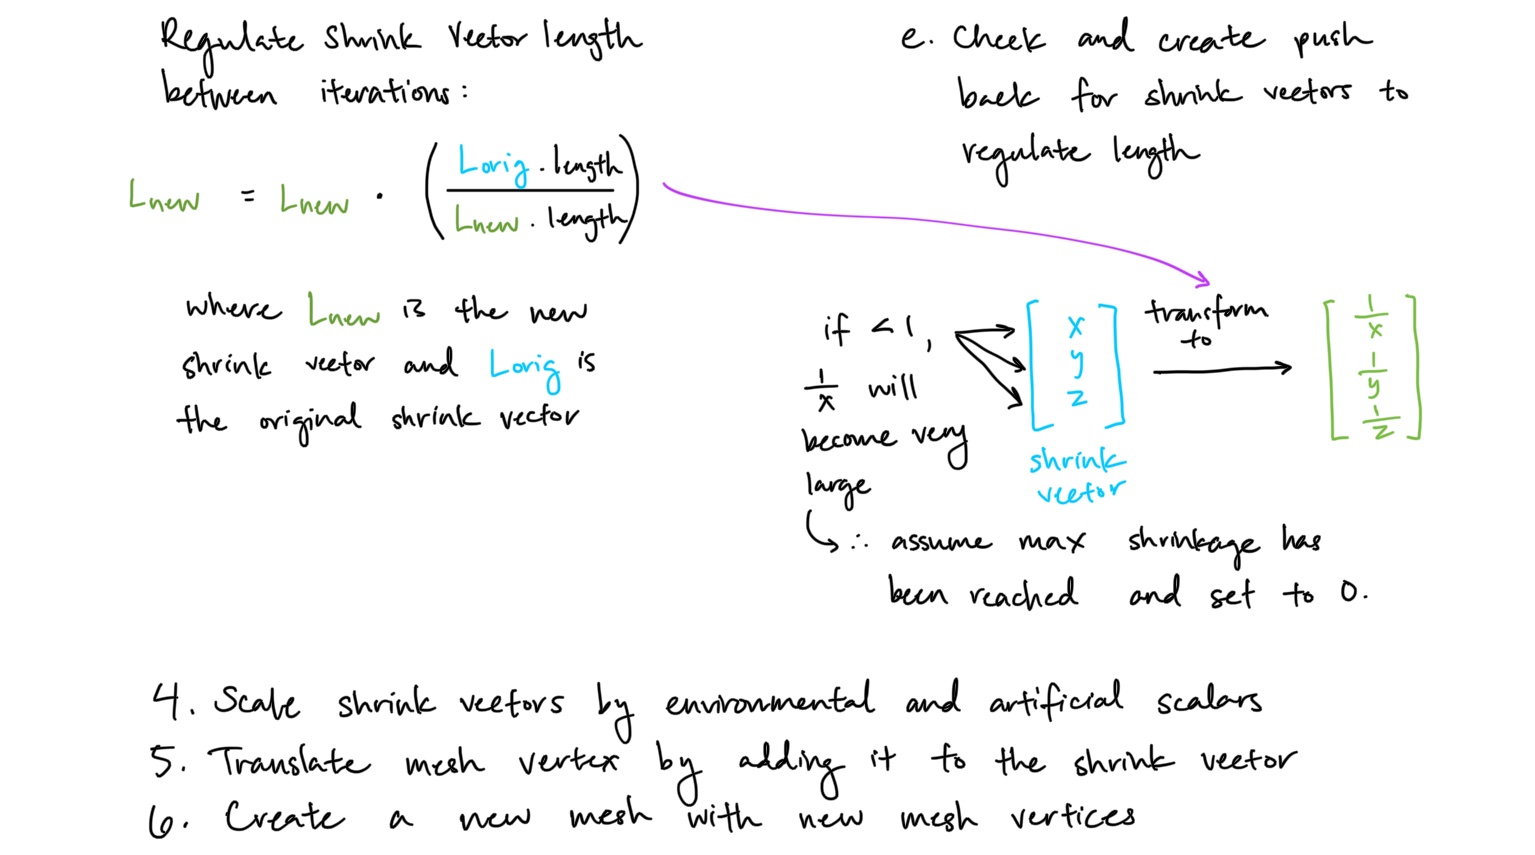 Regulate Shrink Vector length
between iterations:
Lnew = Lnew · (Lorig . length / Lnew . length)
where Lnew is the new
shrink vector and Lorig is
the original shrink vector
e. Check and create push
back for shrink vectors to
regulate length
if < 1,
1/x will
become very
large
[x
y
z]
shrink
vector
transform
to
[1/x
1/y
1/z]
∴ assume max shrinkage has
been reached and set to 0.
4. Scale shrink vectors by environmental and artificial scalars
5. Translate mesh vertex by adding it to the shrink vector
6. Create a new mesh with new mesh vertices